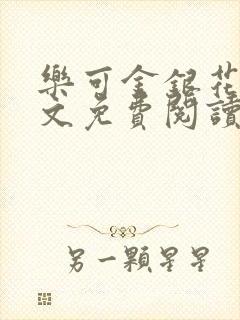 樂可金銀花
文免費閱讀
另一顆星星